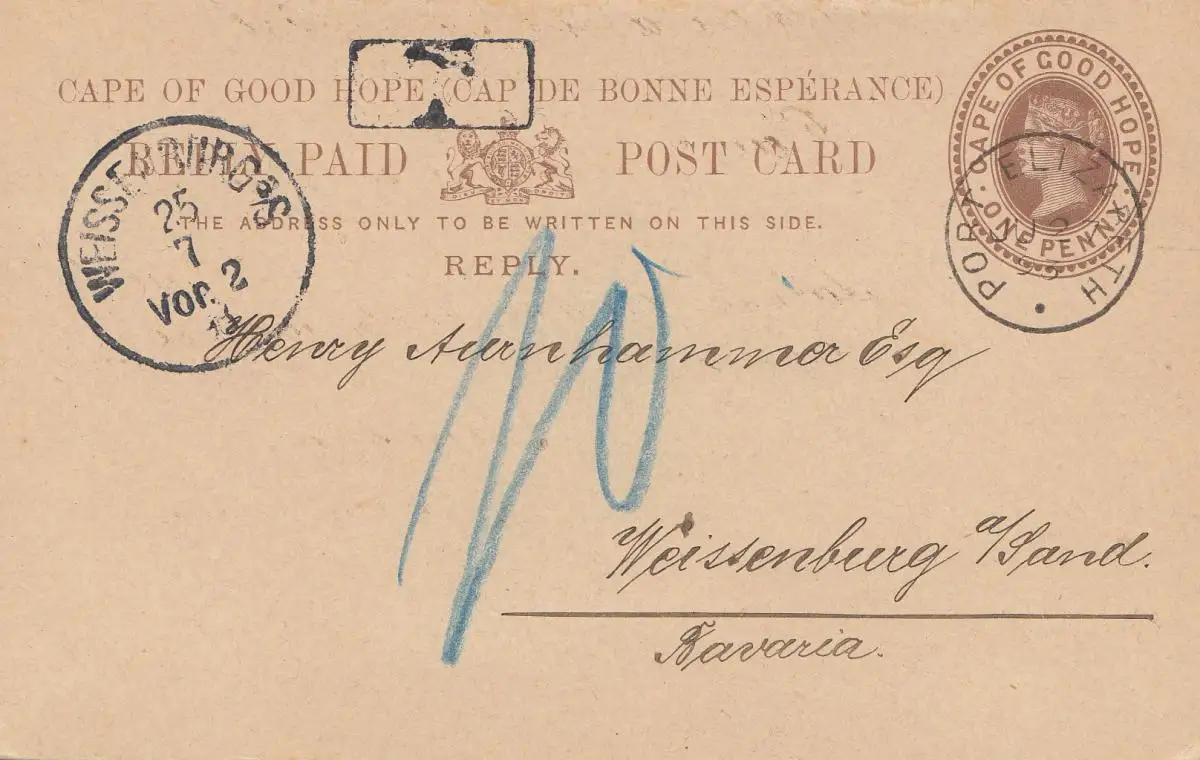 CAPE OF GOOD HOPE (CAP DE BONNE ESPÉRANCE)
REPLY PAID POST CARD
THE ADDRESS ONLY TO BE WRITTEN ON THIS SIDE.
REPLY.
CAPE OF GOOD HOPE
ONE PENNY
PORT ELIZABETH
T
25
7
Vor. 2
10
Henry Aurnhammer Esq
Weissenburg a/Sand.
Bavaria.